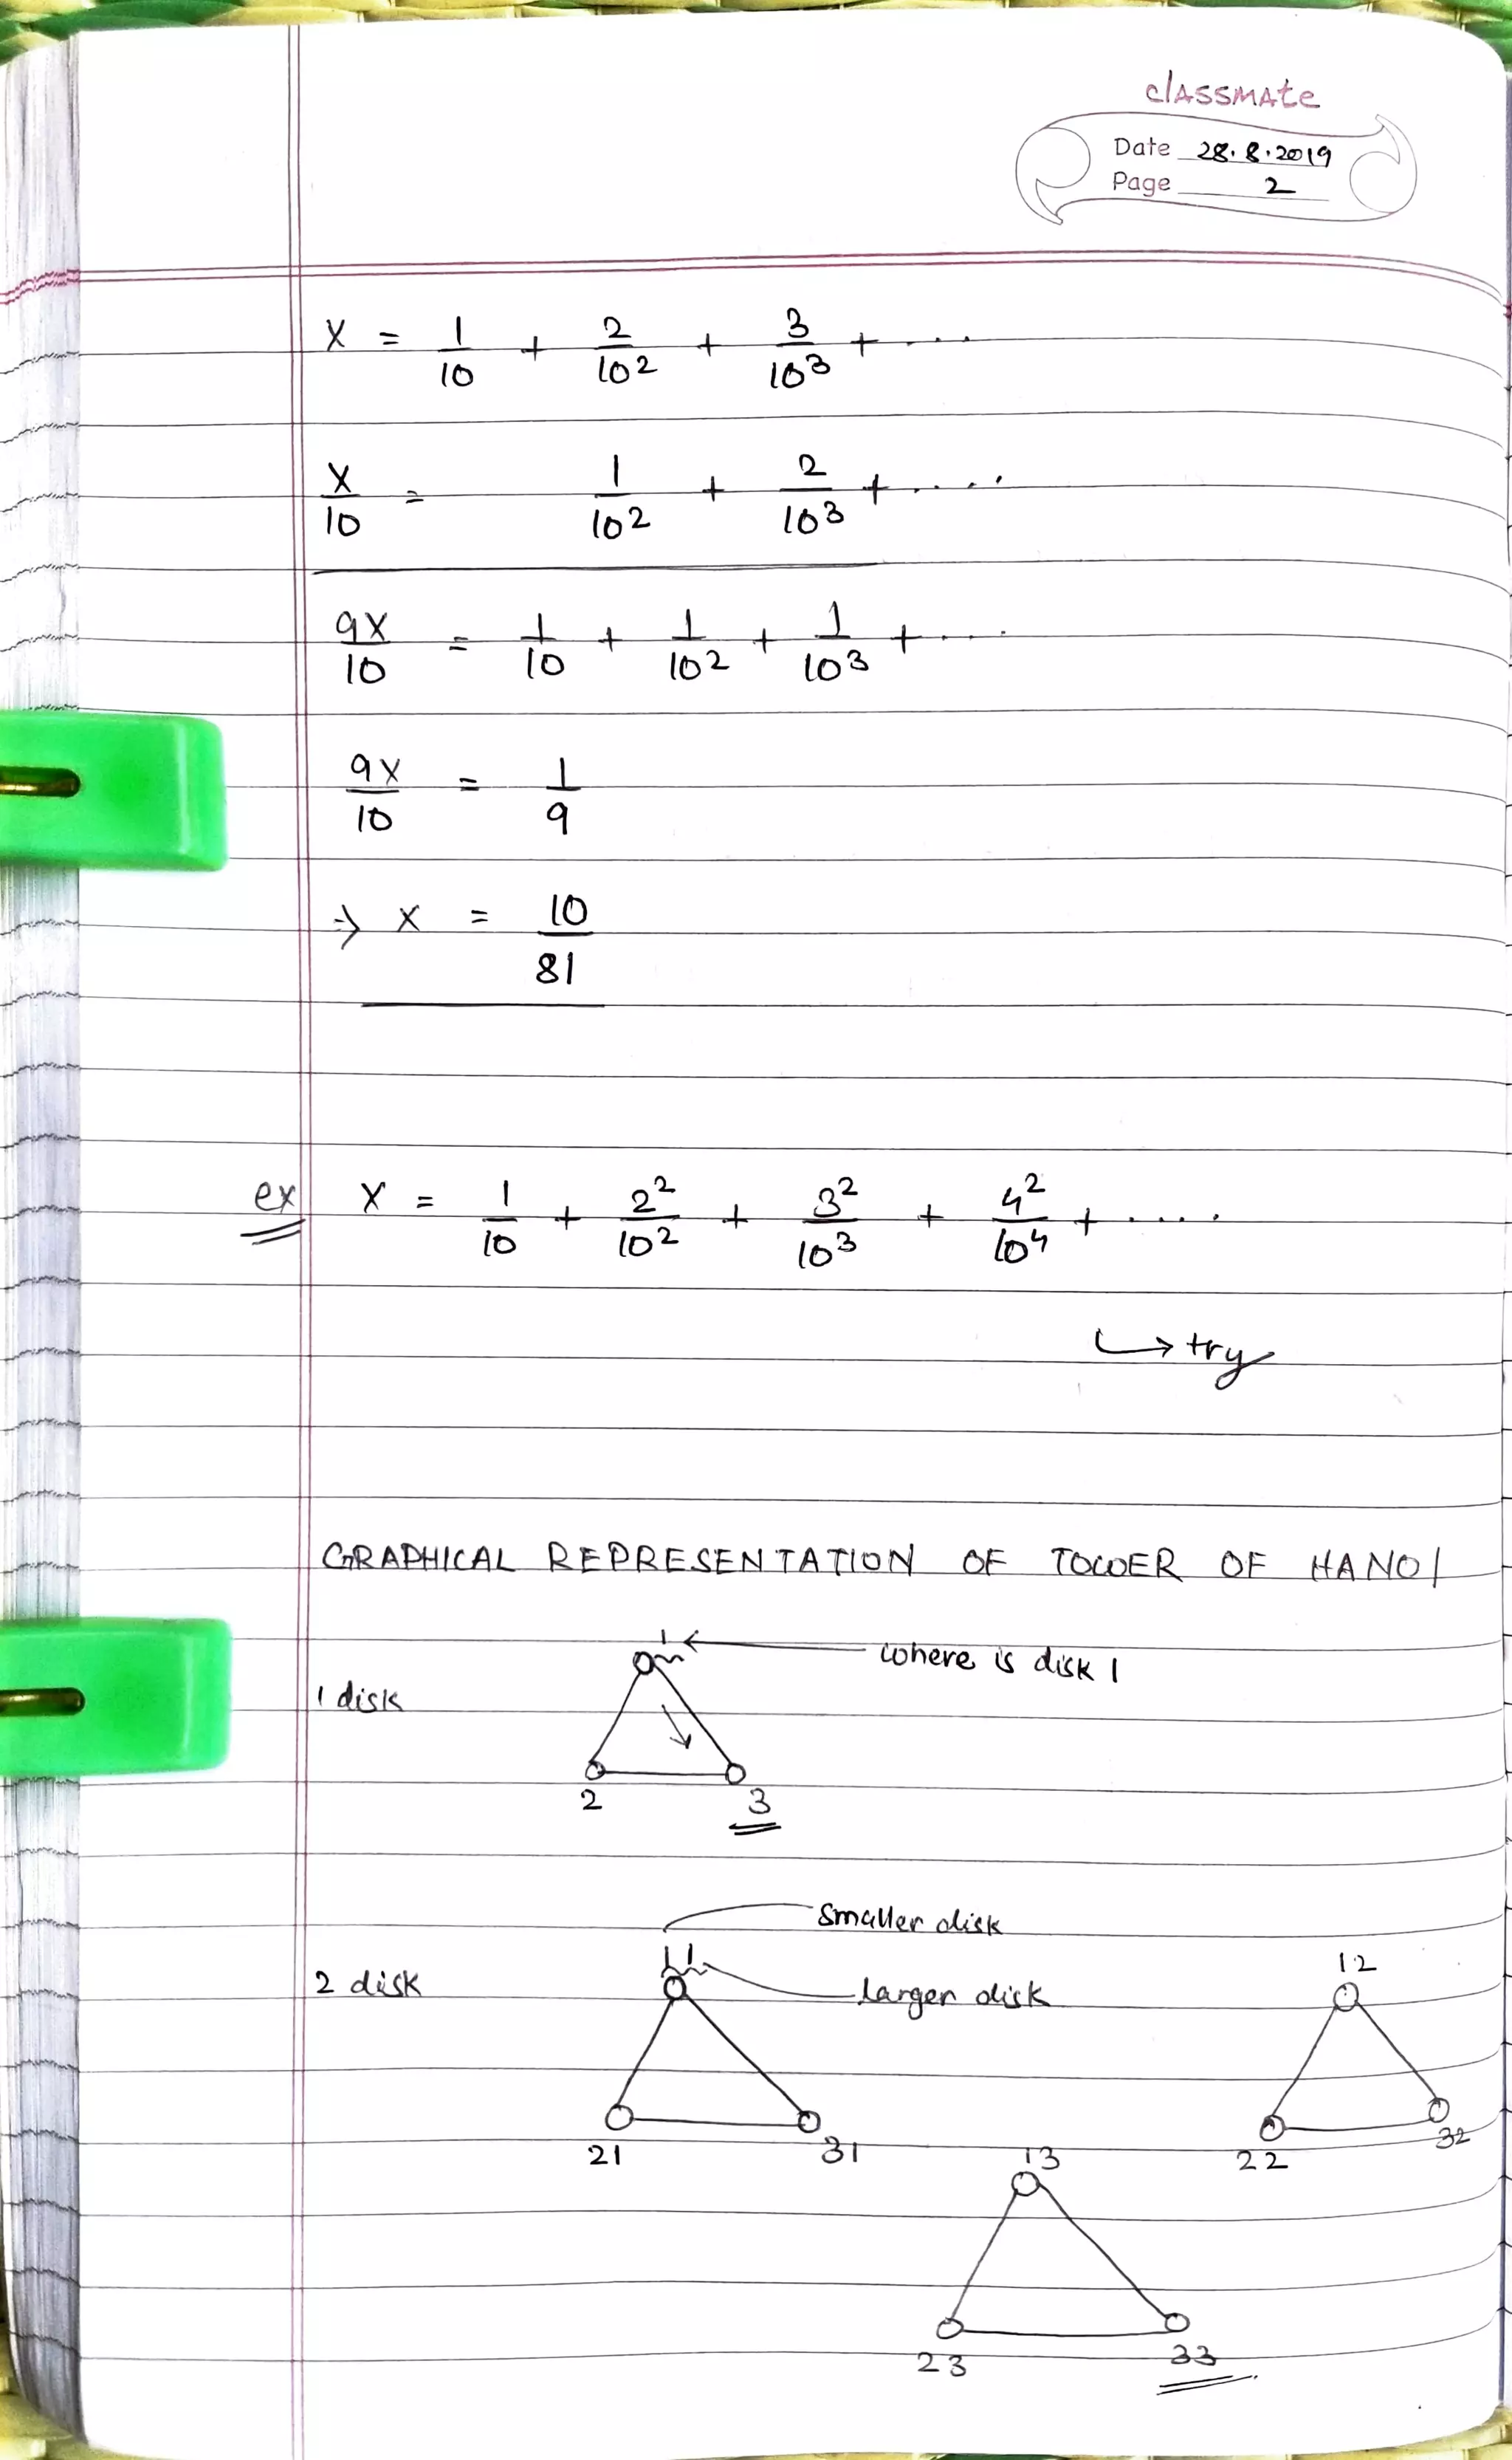 classmate
Date 28.8.2019
Page 2
X = 1/10 + 2/10² + 3/10³ + ....
X/10 = 1/10² + 2/10³ + .....
9X/10 = 1/10 + 1/10² + 1/10³ + ....
9X/10 = 1/9
⇒ X = 10/81
ex X = 1/10 + 2²/10² + 3²/10³ + 4²/10⁴ + ....
↳ try
GRAPHICAL REPRESENTATION OF TOWER OF HANOI
1 ← where is disk 1
1 disk
2 3
smaller disk
11 12
2 disk larger disk
21 31 13 22 32
23 33